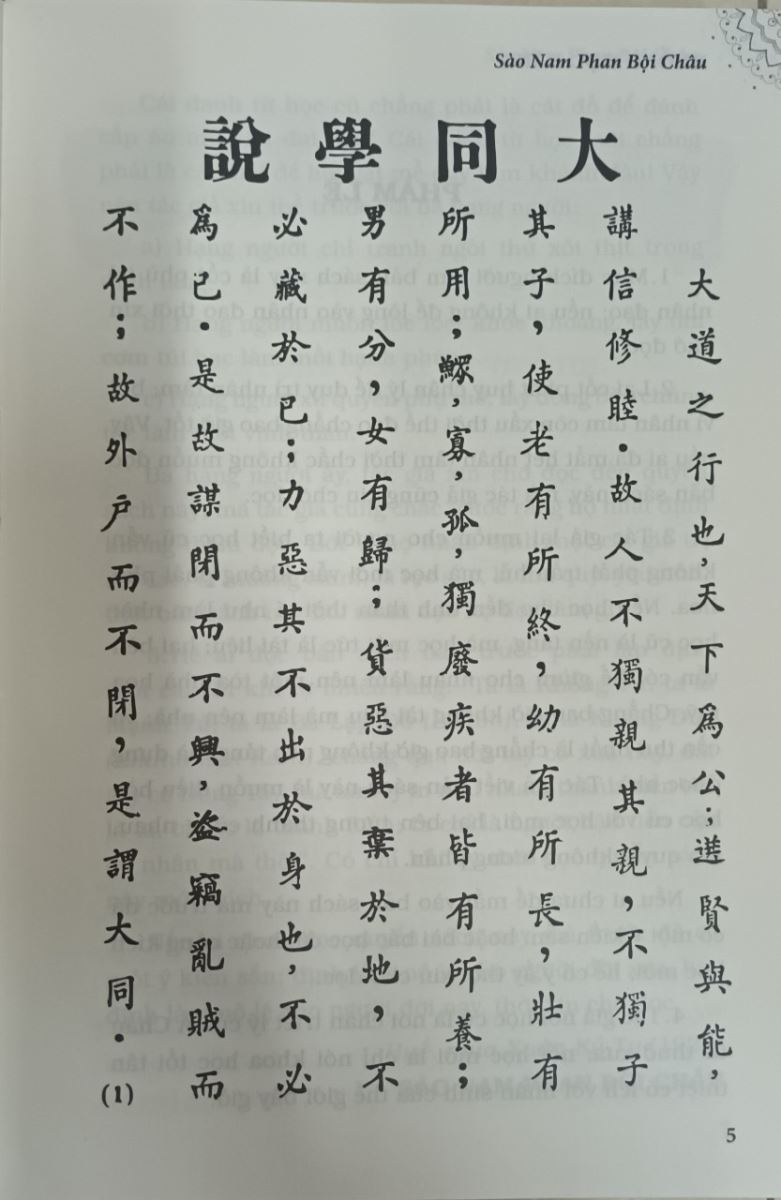 Sào Nam Phan Bội Châu
大同學說
大道之行也,天下爲公;選賢與能,
講信修睦.故人不獨親其親,不獨子
其子,使老有所終,幼有所長,壯有
所用;鰥,寡,孤,獨廢疾者皆有所養;
男有分,女有歸;貨惡其棄於地,不
必藏於已;力惡其不出於身也,不必
爲已.是故謀閉而不興,盗竊亂賊而
不作;故外户而不閉,是謂大同.(1)
5